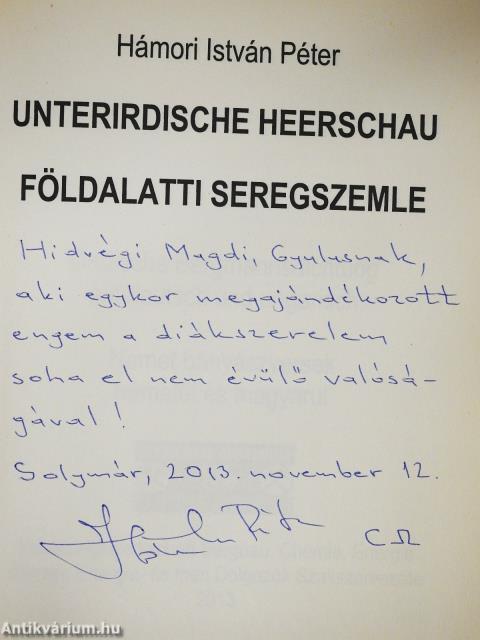 Hámori István Péter
UNTERIRDISCHE HEERSCHAU
FÖLDALATTI SEREGSZEMLE
Hidvégi Magdi, Gyulusnak,
aki egykor megajándékozott
engem a diákszerelem
soha el nem évülő valósá-
gával!
Solymár, 2013. november 12.
Antikvárium.hu